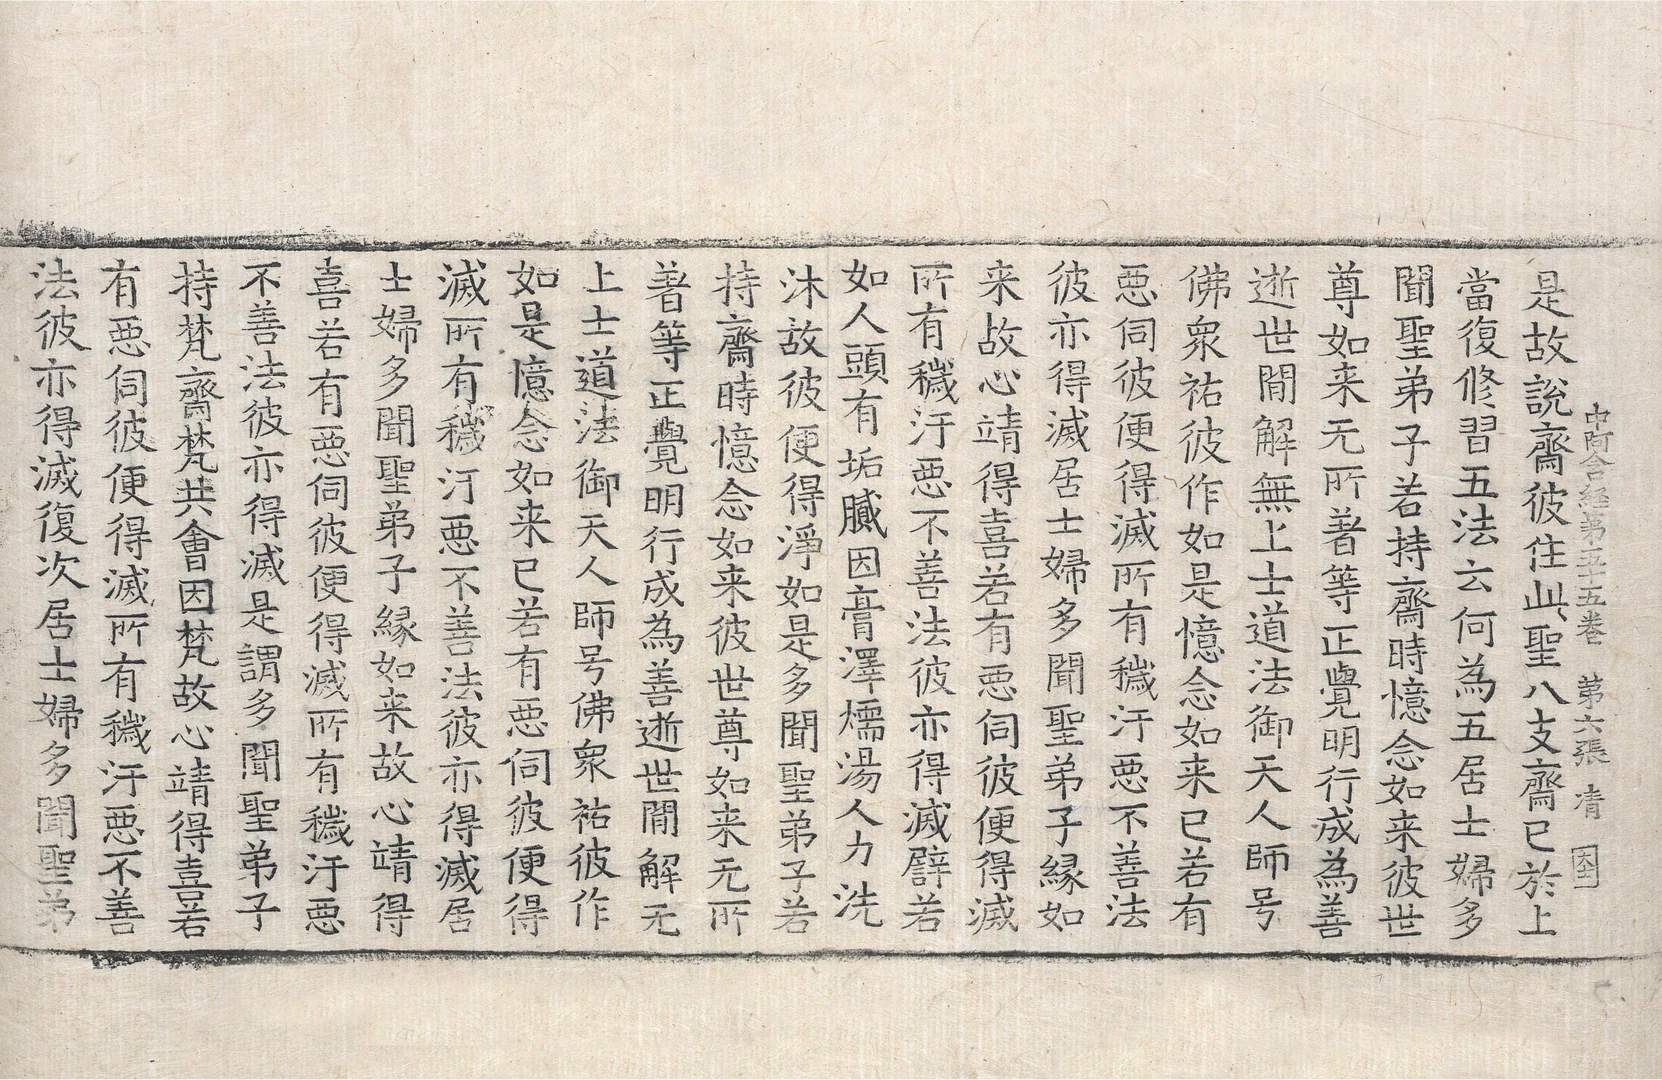 中阿含経第五十五卷 第六張 凊
是故說齋彼住此聖八支齋已於上
當復修習五法云何為五居士婦多
聞聖弟子若持齋時憶念如来彼世
尊如来无所著等正覺明行成為善
逝世間解無上士道法御天人師号
佛衆祐彼作如是憶念如来已若有
悪伺彼便得滅所有穢汙悪不善法
彼亦得滅居士婦多聞聖弟子縁如
来故心靖得喜若有悪伺彼便得滅
所有穢汙悪不善法彼亦得滅譬若
如人頭有垢膩因膏澤燸湯人力洗
沐故彼便得淨如是多聞聖弟子若
持齋時憶念如来彼世尊如来无所
著等正覺明行成為善逝世間解无
上士道法御天人師号佛衆祐彼作
如是憶念如来已若有悪伺彼便得
滅所有穢汙悪不善法彼亦得滅居
士婦多聞聖弟子縁如来故心靖得
喜若有悪伺彼便得滅所有穢汙悪
不善法彼亦得滅是謂多聞聖弟子
持梵齋梵共會因梵故心靖得喜若
有悪伺彼便得滅所有穢汙悪不善
法彼亦得滅復次居士婦多聞聖弟